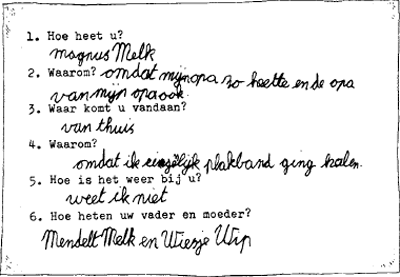 1. Hoe heet u?
magnus Melk
2. Waarom? omdat mijn opa zo heette en de opa
van mijn opa ook.
3. Waar komt u vandaan?
van thuis
4. Waarom?
omdat ik eigelijk plakband ging halen.
5. Hoe is het weer bij u?
weet ik niet
6. Hoe heten uw vader en moeder?
Mendelt Melk en Wiesje Wip